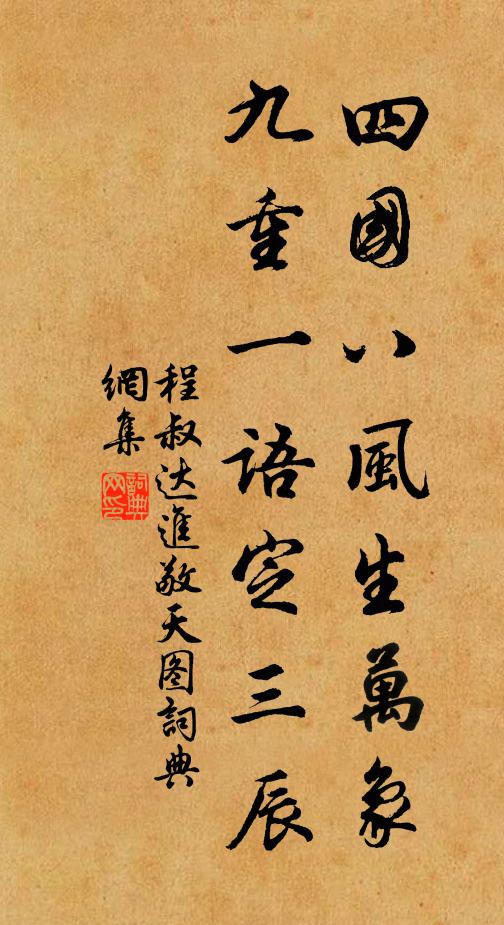 四國八風生萬象
九重一語定三辰
程叔达進敬天图詞典
網集
詞典
网印